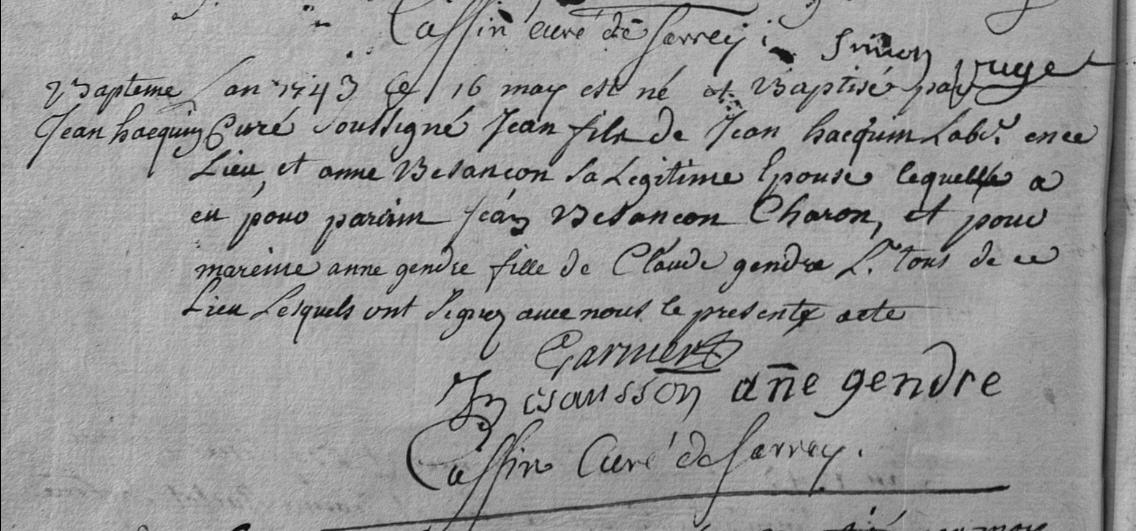 Cassin curé de Serrey
Simon puget
Bapteme L'an 1743 Le 16 may est né et Baptisé par
Jean hacquin Curé Soussigné Jean fils de Jean hacquin Lab.r en ce
Lieu et anne Besancon sa Legitime Epouse lequelle a
eu pour parain Jean Besancon Charon, et pour
mareine anne gendre fille de Claude gendre L.r tous de ce
Lieu Lesquels ont signez avec nous le present acte
Garnier
Besansson añe gendre
Cassin Curé de Serrey.